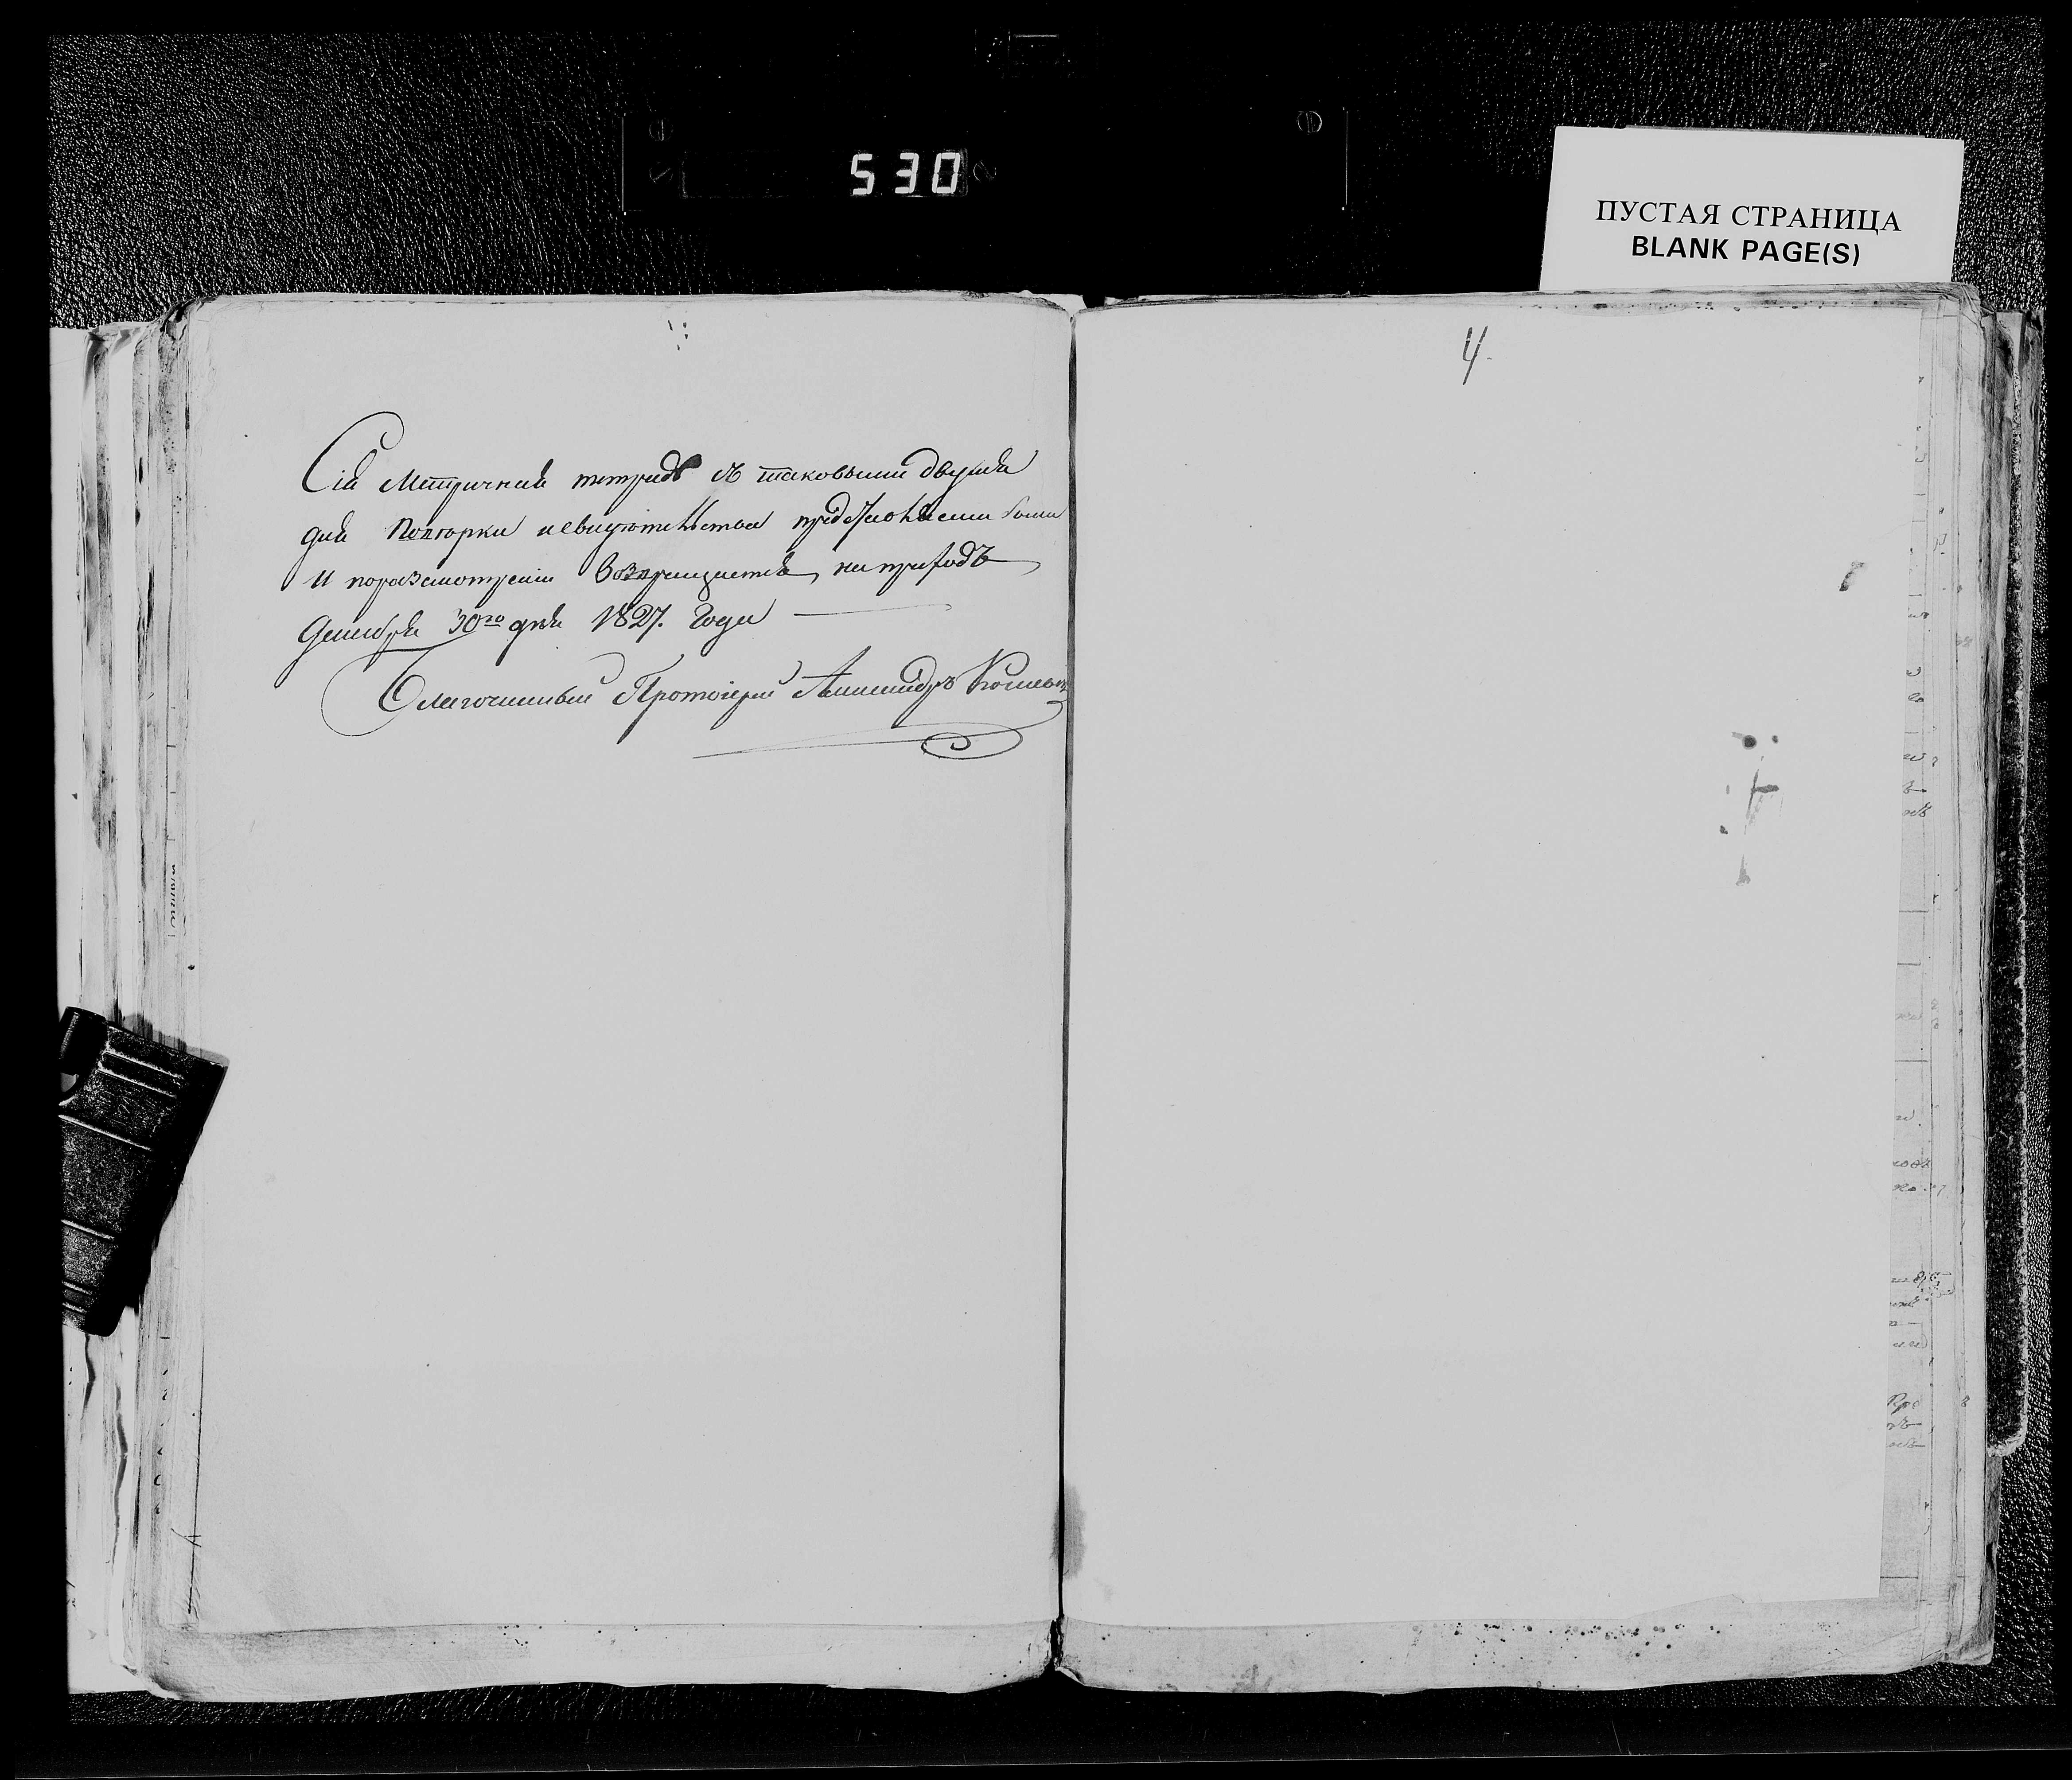 530
ПУСТАЯ СТРАНИЦА
BLANK PAGE(S)
4.
Сія Метричная тетрадь съ таковыми двумя
для Повѣрки и свидѣтельства предъявляема была
и поразсмотреніи возвращается на приходъ
Декабря 30го дня 1827. Года
Благочинный Протоіерей Александръ